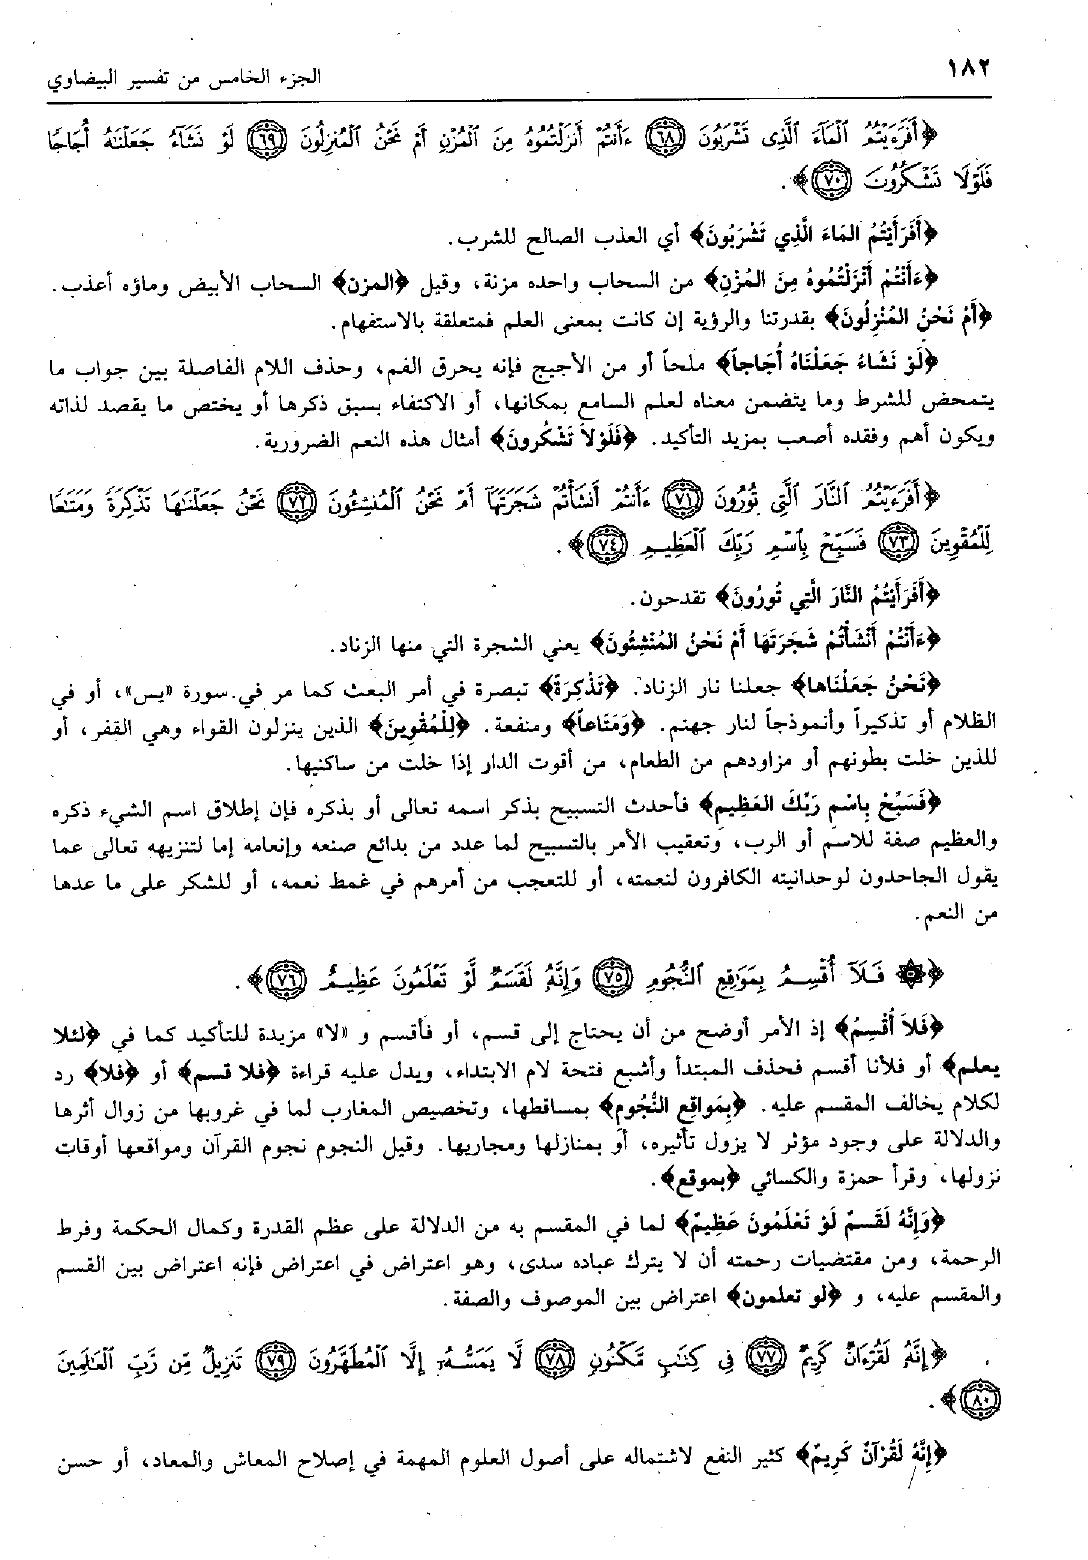 ١٨٢
الجزء الخامس من تفسير البيضاوي
﴿أَفَرَءَيْتُمُ ٱلْمَآءَ ٱلَّذِى تَشْرَبُونَ ﴿٦٨﴾ ءَأَنتُمْ أَنزَلْتُمُوهُ مِنَ ٱلْمُزْنِ أَمْ نَحْنُ ٱلْمُنزِلُونَ ﴿٦٩﴾ لَوْ نَشَآءُ جَعَلْنَٰهُ أُجَاجًا
فَلَوْلَا تَشْكُرُونَ ﴿٧٠﴾﴾.
﴿أَفَرَأَيْتُمُ المَاءَ الَّذِي تَشْرَبُونَ﴾ أي العذب الصالح للشرب.
﴿ءَأَنْتُمْ أَنْزَلْتُمُوهُ مِنَ المُزْنِ﴾ من السحاب واحده مزنة، وقيل ﴿المزن﴾ السحاب الأبيض وماؤه أعذب.
﴿أَمْ نَحْنُ المُنْزِلُونَ﴾ بقدرتنا والرؤية إن كانت بمعنى العلم فمتعلقة بالاستفهام.
﴿لَوْ نَشَاءُ جَعَلْنَاهُ أُجَاجاً﴾ ملحاً أو من الأجيج فإنه يحرق الفم، وحذف اللام الفاصلة بين جواب ما
يتمحض للشرط وما يتضمن معناه لعلم السامع بمكانها، أو الاكتفاء بسبق ذكرها أو يختص ما يقصد لذاته
ويكون أهم وفقده أصعب بمزيد التأكيد. ﴿فَلَوْلاَ تَشْكُرونَ﴾ أمثال هذه النعم الضرورية.
﴿أَفَرَءَيْتُمُ ٱلنَّارَ ٱلَّتِى تُورُونَ ﴿٧١﴾ ءَأَنتُمْ أَنشَأْتُمْ شَجَرَتَهَآ أَمْ نَحْنُ ٱلْمُنشِـُٔونَ ﴿٧٢﴾ نَحْنُ جَعَلْنَٰهَا تَذْكِرَةً وَمَتَٰعًا
لِّلْمُقْوِينَ ﴿٧٣﴾ فَسَبِّحْ بِٱسْمِ رَبِّكَ ٱلْعَظِيمِ ﴿٧٤﴾﴾.
﴿أَفَرَأَيْتُمُ النَّارَ الَّتِي تُورُونَ﴾ تقدحون.
﴿ءَأَنْتُمْ أَنْشَأْتُمْ شَجَرَتَهَا أَمْ نَحْنُ المُنْشِئُونَ﴾ يعني الشجرة التي منها الزناد.
﴿نَحْنُ جَعَلْنَاهَا﴾ جعلنا نار الزناد. ﴿تَذْكِرَةً﴾ تبصرة في أمر البعث كما مر في سورة «يس»، أو في
الظلام أو تذكيراً وأنموذجاً لنار جهنم. ﴿وَمَتَاعاً﴾ ومنفعة. ﴿لِلْمُقْوِينَ﴾ الذين ينزلون القواء وهي القفر، أو
للذين خلت بطونهم أو مزاودهم من الطعام، من أقوت الدار إذا خلت من ساكنيها.
﴿فَسَبِّحْ بِاسْمِ رَبِّكَ العَظِيمِ﴾ فأحدث التسبيح بذكر اسمه تعالى أو بذكره فإن إطلاق اسم الشيء ذكره
والعظيم صفة للاسم أو الرب، وتعقيب الأمر بالتسبيح لما عدد من بدائع صنعه وإنعامه إما لتنزيهه تعالى عما
يقول الجاحدون لوحدانيته الكافرون لنعمته، أو للتعجب من أمرهم في غمط نعمه، أو للشكر على ما عدها
من النعم.
﴿۞ فَلَآ أُقْسِمُ بِمَوَٰقِعِ ٱلنُّجُومِ ﴿٧٥﴾ وَإِنَّهُۥ لَقَسَمٌ لَّوْ تَعْلَمُونَ عَظِيمٌ ﴿٧٦﴾﴾.
﴿فَلاَ أُقْسِمُ﴾ إذ الأمر أوضح من أن يحتاج إلى قسم، أو فأقسم و «لا» مزيدة للتأكيد كما في ﴿لئلا
يعلم﴾ أو فلأنا أقسم فحذف المبتدأ وأشبع فتحة لام الابتداء، ويدل عليه قراءة ﴿فلا قسم﴾ أو ﴿فلا﴾ رد
لكلام يخالف المقسم عليه. ﴿بِمَواقِعِ النُّجُومِ﴾ بمساقطها، وتخصيص المغارب لما في غروبها من زوال أثرها
والدلالة على وجود مؤثر لا يزول تأثيره، أو بمنازلها ومجاريها. وقيل النجوم نجوم القرآن ومواقعها أوقات
نزولها، وقرأ حمزة والكسائي ﴿بموقع﴾.
﴿وَإِنَّهُ لَقَسَمٌ لَوْ تَعْلَمُونَ عَظِيمٌ﴾ لما في المقسم به من الدلالة على عظم القدرة وكمال الحكمة وفرط
الرحمة، ومن مقتضيات رحمته أن لا يترك عباده سدى، وهو اعتراض في اعتراض فإنه اعتراض بين القسم
والمقسم عليه، و ﴿لو تعلمون﴾ اعتراض بين الموصوف والصفة.
﴿إِنَّهُۥ لَقُرْءَانٌ كَرِيمٌ ﴿٧٧﴾ فِى كِتَٰبٍ مَّكْنُونٍ ﴿٧٨﴾ لَّا يَمَسُّهُۥٓ إِلَّا ٱلْمُطَهَّرُونَ ﴿٧٩﴾ تَنزِيلٌ مِّن رَّبِّ ٱلْعَٰلَمِينَ
﴿٨٠﴾﴾.
﴿إِنَّهُ لَقُرْآنٌ كَرِيمٌ﴾ كثير النفع لاشتماله على أصول العلوم المهمة في إصلاح المعاش والمعاد، أو حسن